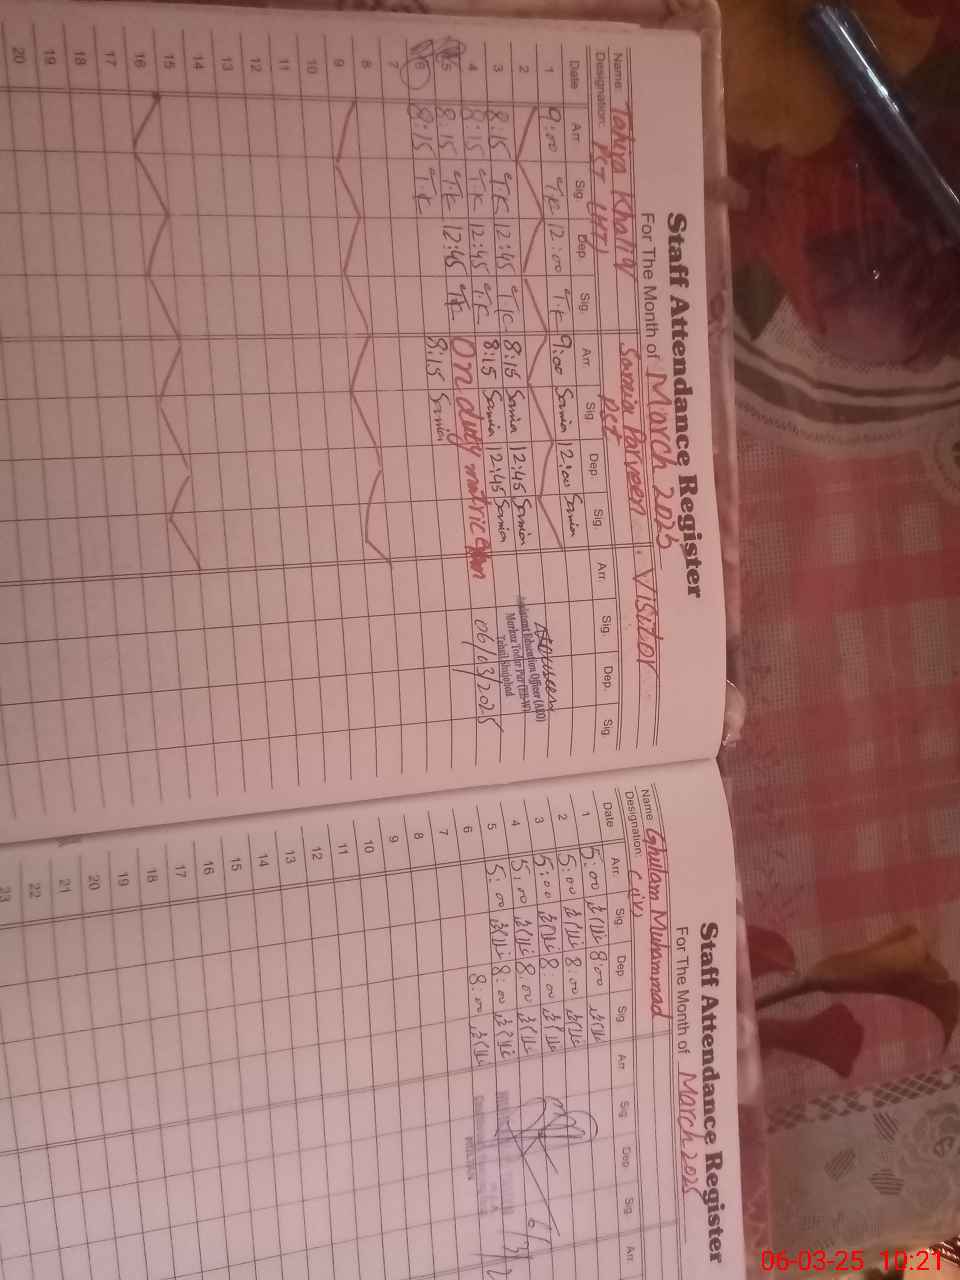 Staff Attendance Register
For The Month of March 2025
Name: Tahira Khaliq Samia Parveen Visitor
Designation: PST (HT) PST
Date Arr. Sig. Dep. Sig. Arr. Sig Dep. Sig. Arr. Sig. Dep. Sig
1 9:00 T.K 12:00 T.K 9:00 Samia 12:00 Samia
2
3 8:15 T.K 12:45 T.K 8:15 Samia 12:45 Samia
4 8:15 T.K 12:45 T.K 8:15 Samia 12:45 Samia
5 8:15 T.K 12:45 T.K On duty matric
6 8:15 T.K 8:15 Samia
7
8
9
10
11
12
13
14
15
16
17
18
19
20
Assistant Education Officer (AEO)
Tehsil Shujabad
06/03/2025
Staff Attendance Register
For The Month of March 2025
Name Ghulam Muhammad
Designation:
Date Arr. Sig. Dep. Sig Arr. Sig Dep. Sig Arr.
1 5:00 8:00
2 5:00 8:00
3 5:00 8:00
4 5:00 8:00
5 5:00 8:00
6 8:00
7
8
9
10
11
12
13
14
15
16
17
18
19
20
21
22
23
06-03-25 10:21